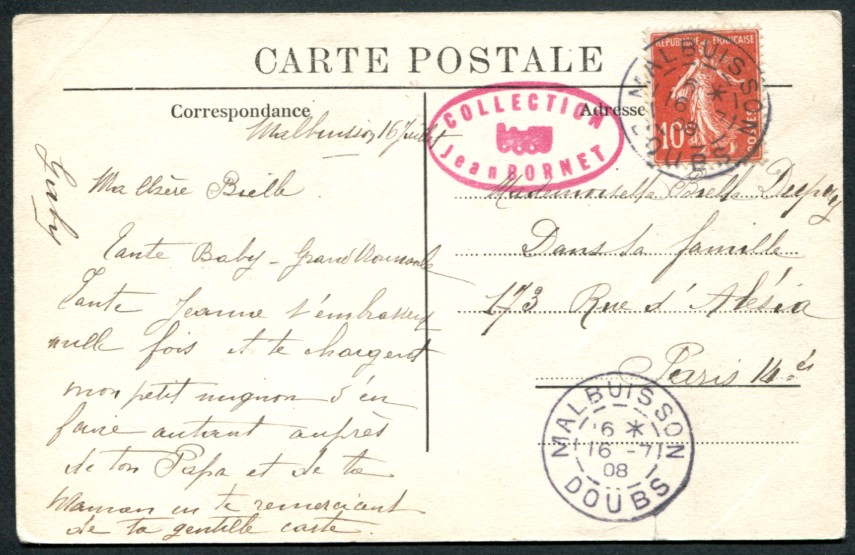 CARTE POSTALE
Correspondance
Adresse
COLLECTION
Jean BORNET
REPUBLIQUE FRANCAISE
10
POSTES
MALBUISSON
16 -7
08
DOUBS
Malbuisson 16 Juillet
Ma Chère Bielle
Tante Baby - Grand
Tante Jeanne t'embrassent
mille fois et te chargent
mon petit mignon d'en
faire autant auprès
de ton Papa et de ta
Maman en te remerciant
de ta gentille carte
Mademoiselle Bielle Dupuy
Dans sa famille
173 Rue d'Alésia
Paris 14 è
MALBUISSON
6 *
16 -7
08
DOUBS